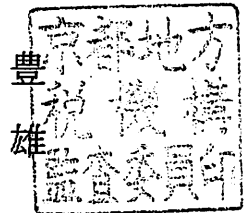 豊雄
京都地方
税機構
監査委員印